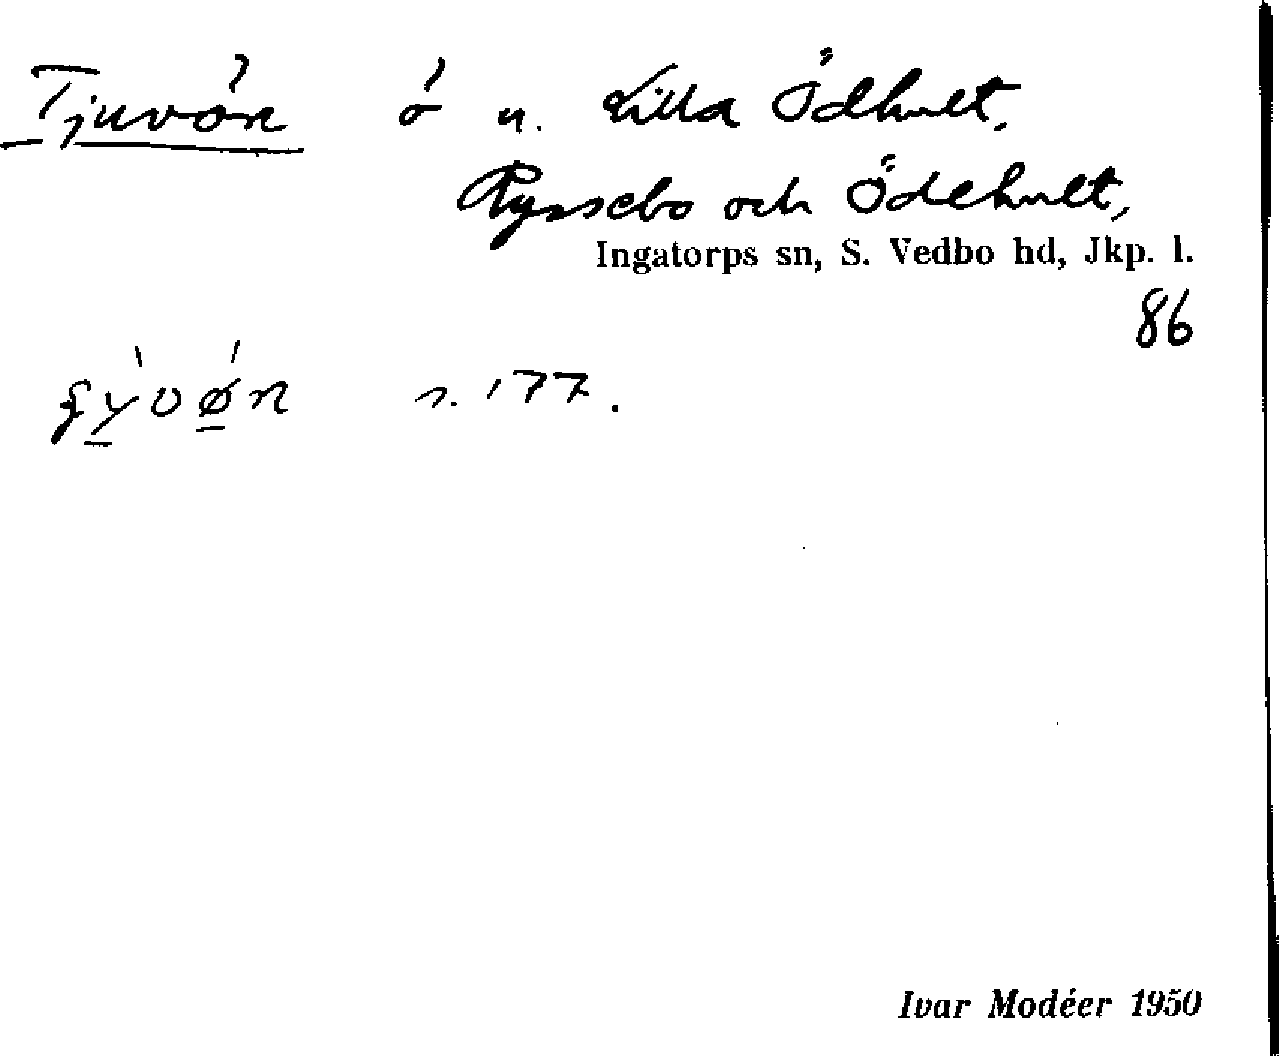 Tjuvön ö u. Lilla Ödhult,
Ryssebo och Ödehult,
Ingatorps sn, S. Vedbo hd, Jkp. l.
86
s. 177.
Ivar Modéer 1950